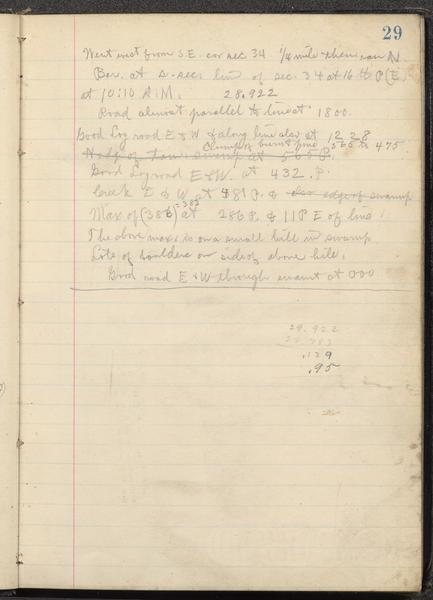 29
Went west from S.E. cor sec 34 1/4 mile & then ran N
Bar. at S. sec. line of sec. 34 at 16th P (E.
at 10:10 A.M. 28.922
Road almost parallel to line at 1800.
Good Log road E & W & along line also at 1228
Clump of burnt pine 565 to 475
Edge of Tam. swamp at 565 P.
Good Log road E & W. at 432. P.
Creek E & W at 381 P. & also edge of swamp
Max of (386) = 385 at 286 P. & 11 P E of line.
The above max is on a small hill in swamp
Lots of boulders on side of above hill.
Good road E & W through swamp at 000
28.922
.139
.95